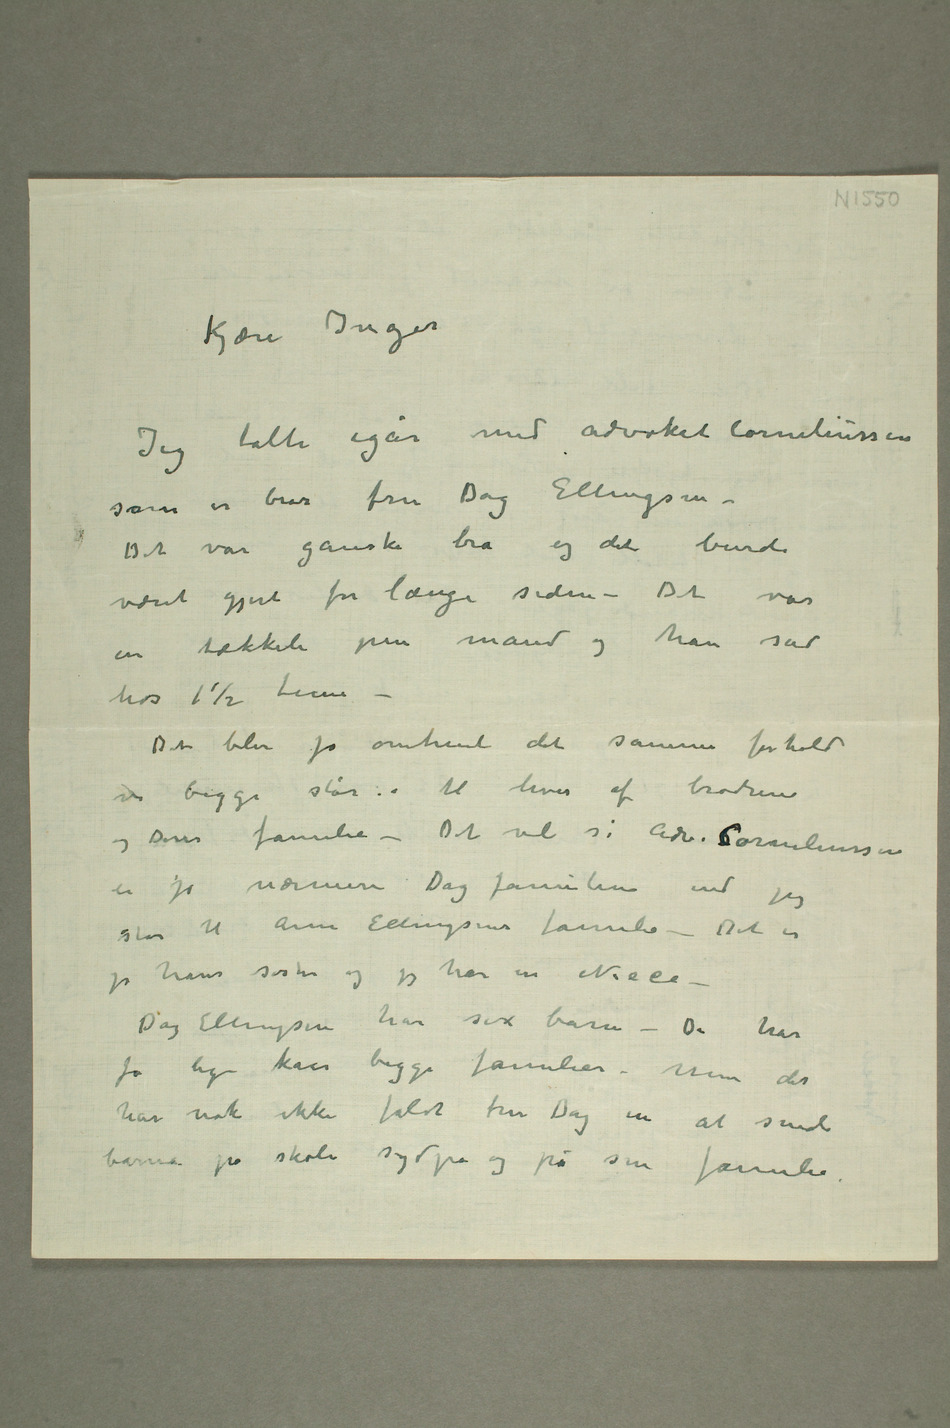 N1550
Kjære Inger
Jeg talte igår med advokat Corneliussen
som er bror fru Dag Ellingsen –
Det var ganske bra og det burde
været gjort for længe siden – Det var
en tækkeli pen mand og han sad
hos 1 1/2 time –
Det blir jo omtrent det samme forhold
vi begge står i til hver af brødrene
og deres familie – Det vil si Adv. Corneliussen
er jo nærmere Dag familien end jeg
står til Arne Ellingsens familie – Det er
jo hans søster og jeg har en Niece –
Dag Ellingsen har sex barn – De har
jo lige kår begge familier – Men det
har nok ikke faldt fru Dag in at sende
barna på skole sydpå og på sin familie.